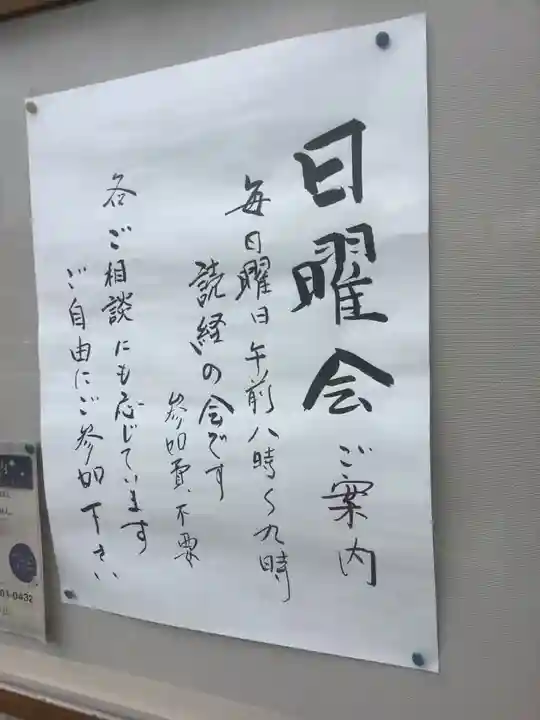 日曜会ご案内
毎日曜日午前八時〜九時
読経の会です
参加費、不要
各ご相談にも応じています
ご自由にご参加下さい
01-0432